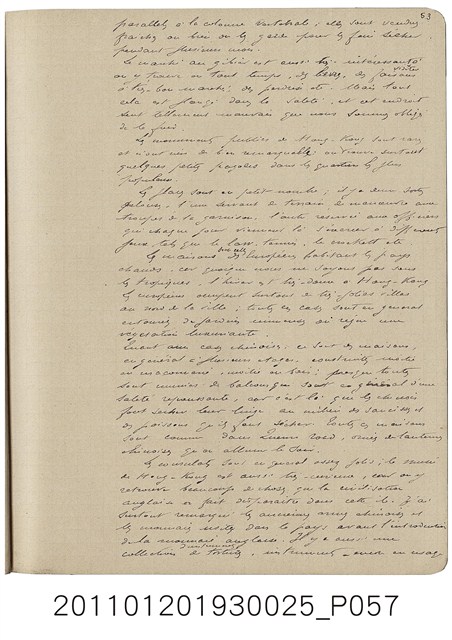 53
parallèle à la colonne vertébrale ; elles sont vendues
fraîches ou bien on les garde pour les faire sécher
pendant plusieurs mois.
Le marché au gibier est aussi très intéressant
on y trouve en tout temps, des lièvres, des faisans
à très bon marché ; des perdrix etc. Mais tout
cela est plongé dans la saleté, et cet endroit
sent tellement mauvais que nous sommes obligés
de le fuir.
Les monuments publics de Hong-Kong sont rares
et n'ont rien de bien remarquable on trouve surtout
quelques petites pagodes dans les quartiers les plus
populeux.
Les places sont en petit nombre ; il y a deux
pelouses, l'une servant de terrain de manœuvre aux
troupes de la garnison, l'autre réservée aux officiers
qui chaque jour viennent ici s'exercer à différents
jeux, tels que le lawn-tennis, le crockett etc
Les maisons des Européens habitant les pays
chauds, car quoique nous ne soyons pas sous
les tropiques, l'hiver est très doux à Hong-Kong
les européens occupent surtout de très jolies villas
au nord de la ville ; toutes ces cases sont en général
entourées de jardins immenses où règne une
végétation luxuriante
Quant aux cases chinoises, ce sont des maisons,
en général à plusieurs étages, construites moitié
en maçonnerie, moitié en bois ; presque toutes
sont munies de balcons qui sont en général d'une
saleté repoussante, car c'est là que les chinois
font sécher leur linge au milieu des saucisses et
des poissons qu'ils font sécher toutes ces maisons
sont comme dans Queen's road, ornées de lanternes
chinoises qu'on allume le soir.
Les consulats sont en général assez jolis ; le musée
de Hong-Kong est aussi très curieux, car on y
retrouve beaucoup de choses que la civilisation
anglaise a fait disparaître dans cette île. J'ai
surtout remarqué les anciennes armes chinoises et
les monnaies usitées dans le pays avant l'introduction
de la monnaie anglaise. Il y a aussi une
collection d'instruments de torture, instruments encore en usage
201101201930025_P057